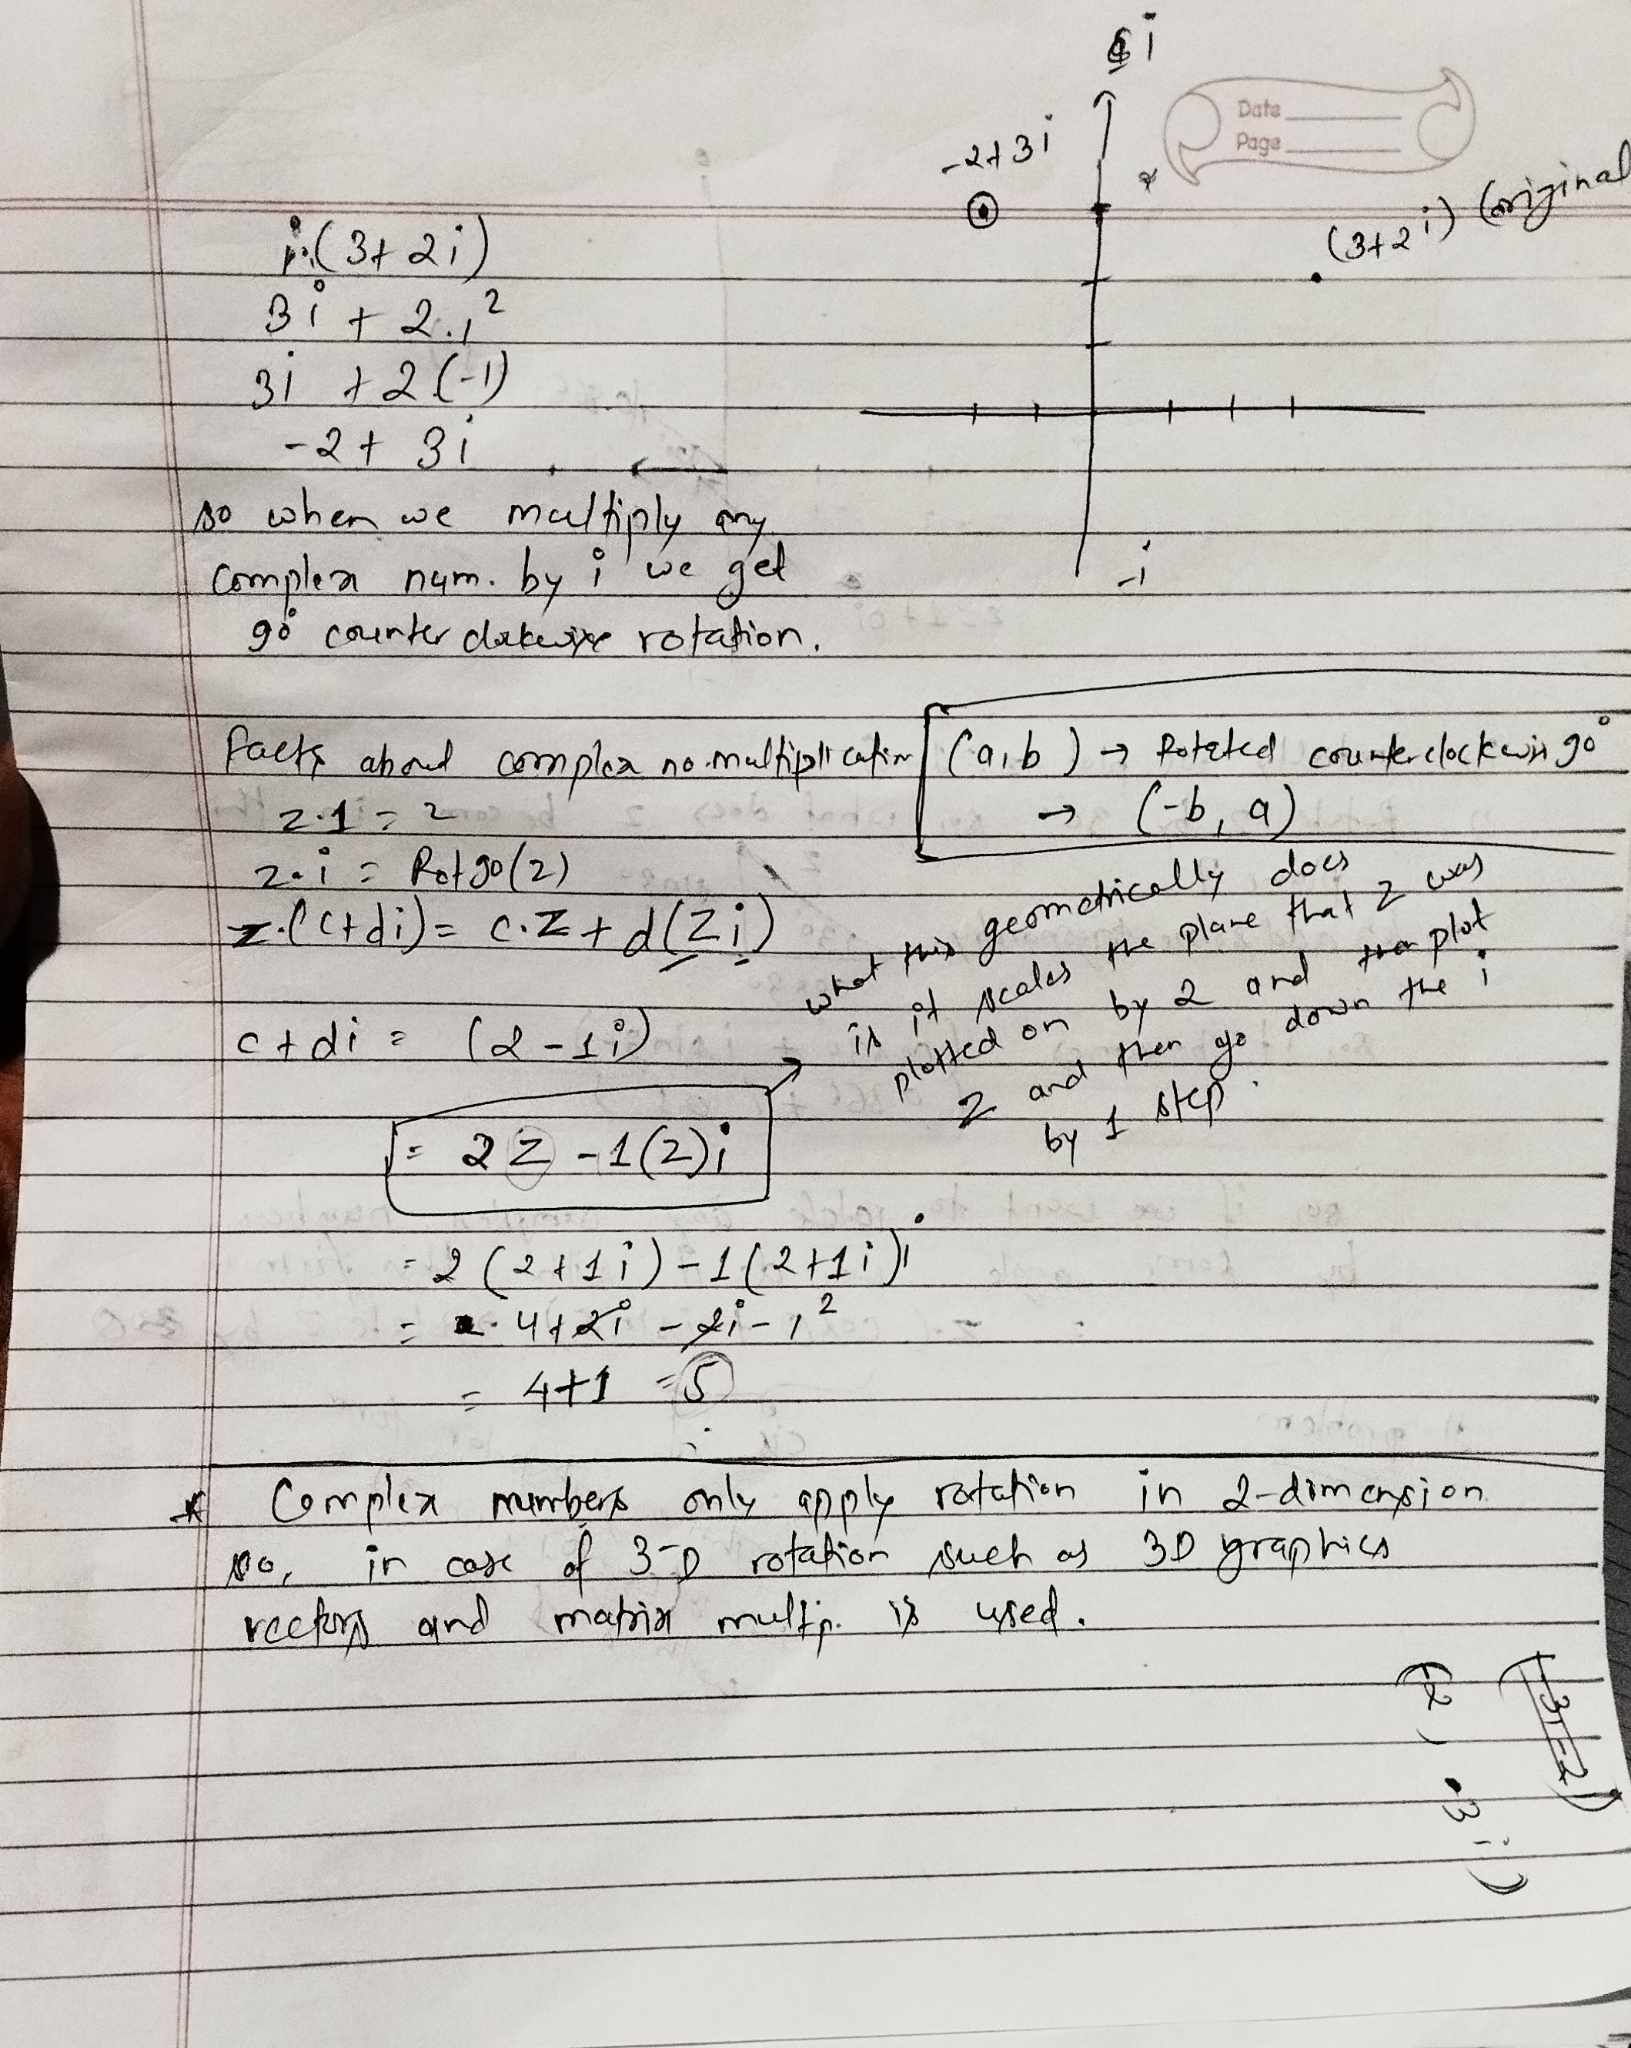 i
Date
Page
-2+3i
(3+2i) (original
i·(3+2i)
3i + 2·i²
3i + 2(-1)
-2+ 3i
so when we multiply any
complex num. by i we get
90° counter clockwise rotation.
-i
Facts about complex no. multiplication
(a,b) → Rotated counterclockwis 90°
→ (-b, a)
z·1 = z
z·i = Rot90(z)
z·(c+di) = c·z + d(zi)
c+di = (2-1i)
= 2z -1(z)i
what this geometrically does
is it scales the plane that z was
plotted on by 2 and then plot
z and then go down the i
by 1 step.
= 2(2+1i)-1(2+1i)i
= 4+2i -2i-i²
= 4+1 =5
* Complex numbers only apply rotation in 2-dimension
so, in case of 3-D rotation such as 3D graphics
vectors and matrix multip. is used.